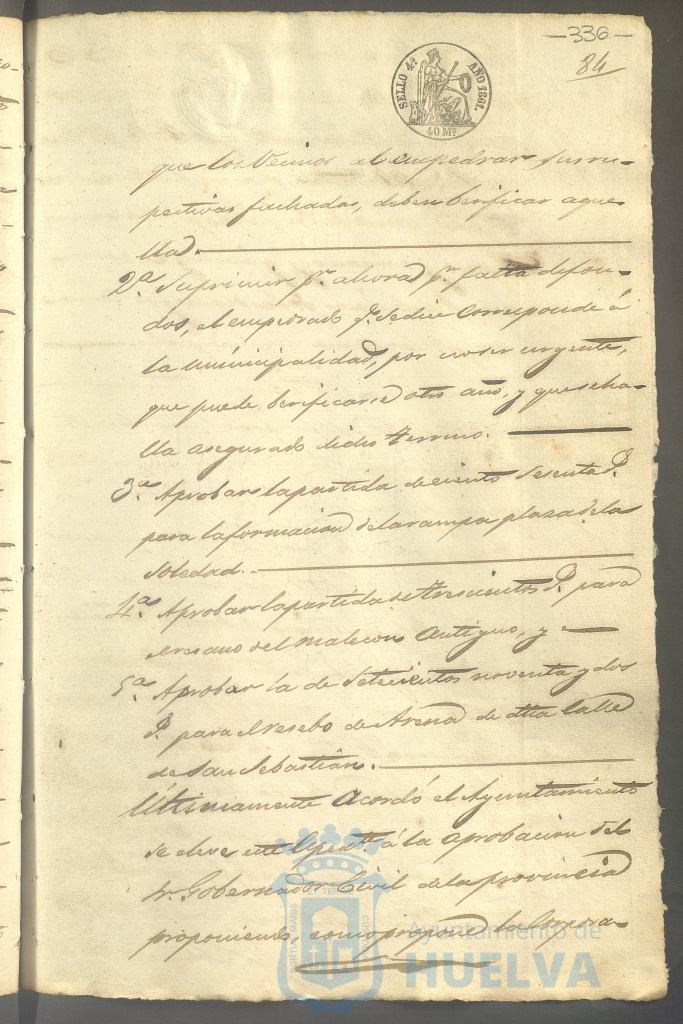 —336—
84
SELLO 4º AÑO 1861.
40 Ms
que los Vecinos al empedrar sus res-
pectivas fachadas, deben berificar aque-
lla.
2ª Suprimir pr. ahora pr. falta de fon-
dos, el empedrado qe. se dice corresponde á
la municipalidad, por no ser urgente,
que puede berificarse otro año, y que se ha-
lla asegurado dicho terreno.
3ª Aprobar la partida de ciento sesenta rs.
para la formacion de la rampa plaza de la
Soledad.
4ª Aprobar la partida de trescientos rs. para
el resano del malecon Antiguo, y
5ª Aprobar la de Setecientos noventa y dos
rs. para el resebo de Arena de dha Calle
de San Sebastian.
Ultimamente Acordó el Ayuntamiento
se eleve este Espente á la aprobacion del
Sr. Gobernador Civil de la provincia
proponiendo, como propone la Corpora-
Ayuntamiento de
HUELVA